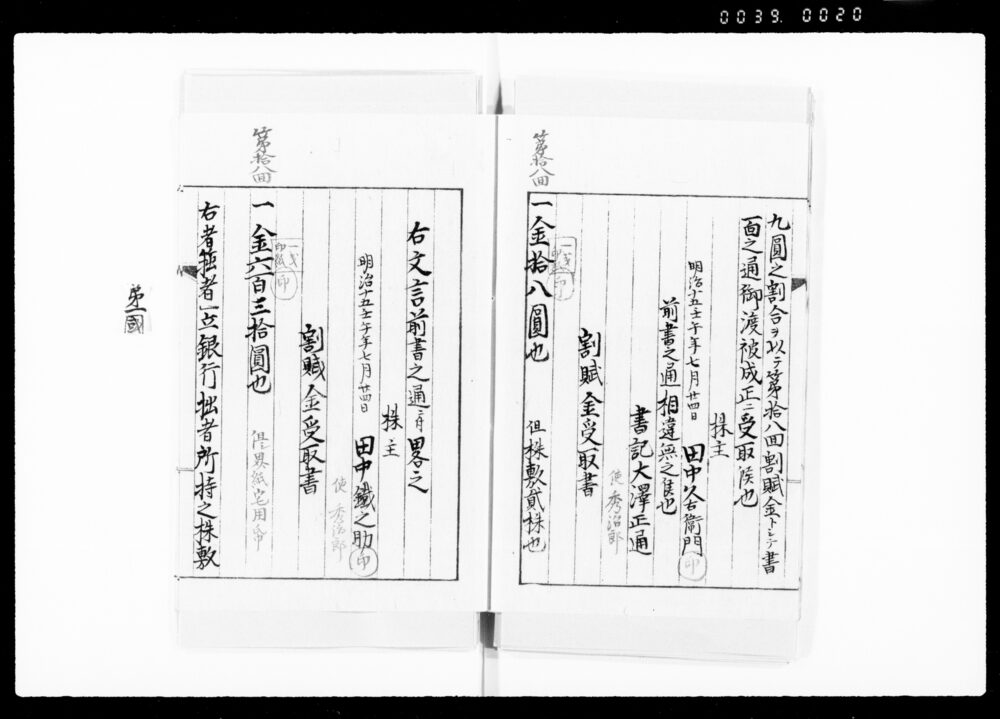 0039. 0020
九圓之割合ヲ以テ第拾八回割賦金トシテ書
面之通御渡被成正ニ受取候也
株主
明治十五壬午年七月廿四日 田中久右衛門 印
前書之通相違無之候也
書記大澤正通
使 秀治郎
割賦金受取書
第拾八回
一金拾八圓也 但株敷貳株也
一戋
印紙
印
右文言前書之通ニ付畧之
株主
明治十五壬午年七月廿四日 田中鐵之助 印
使 秀治郎
割賦金受取書
一戋
印紙
印
第拾八回
一金六百三拾圓也 但界紙宅用命
右者拙者一立銀行拙者所持之株敷
第一國